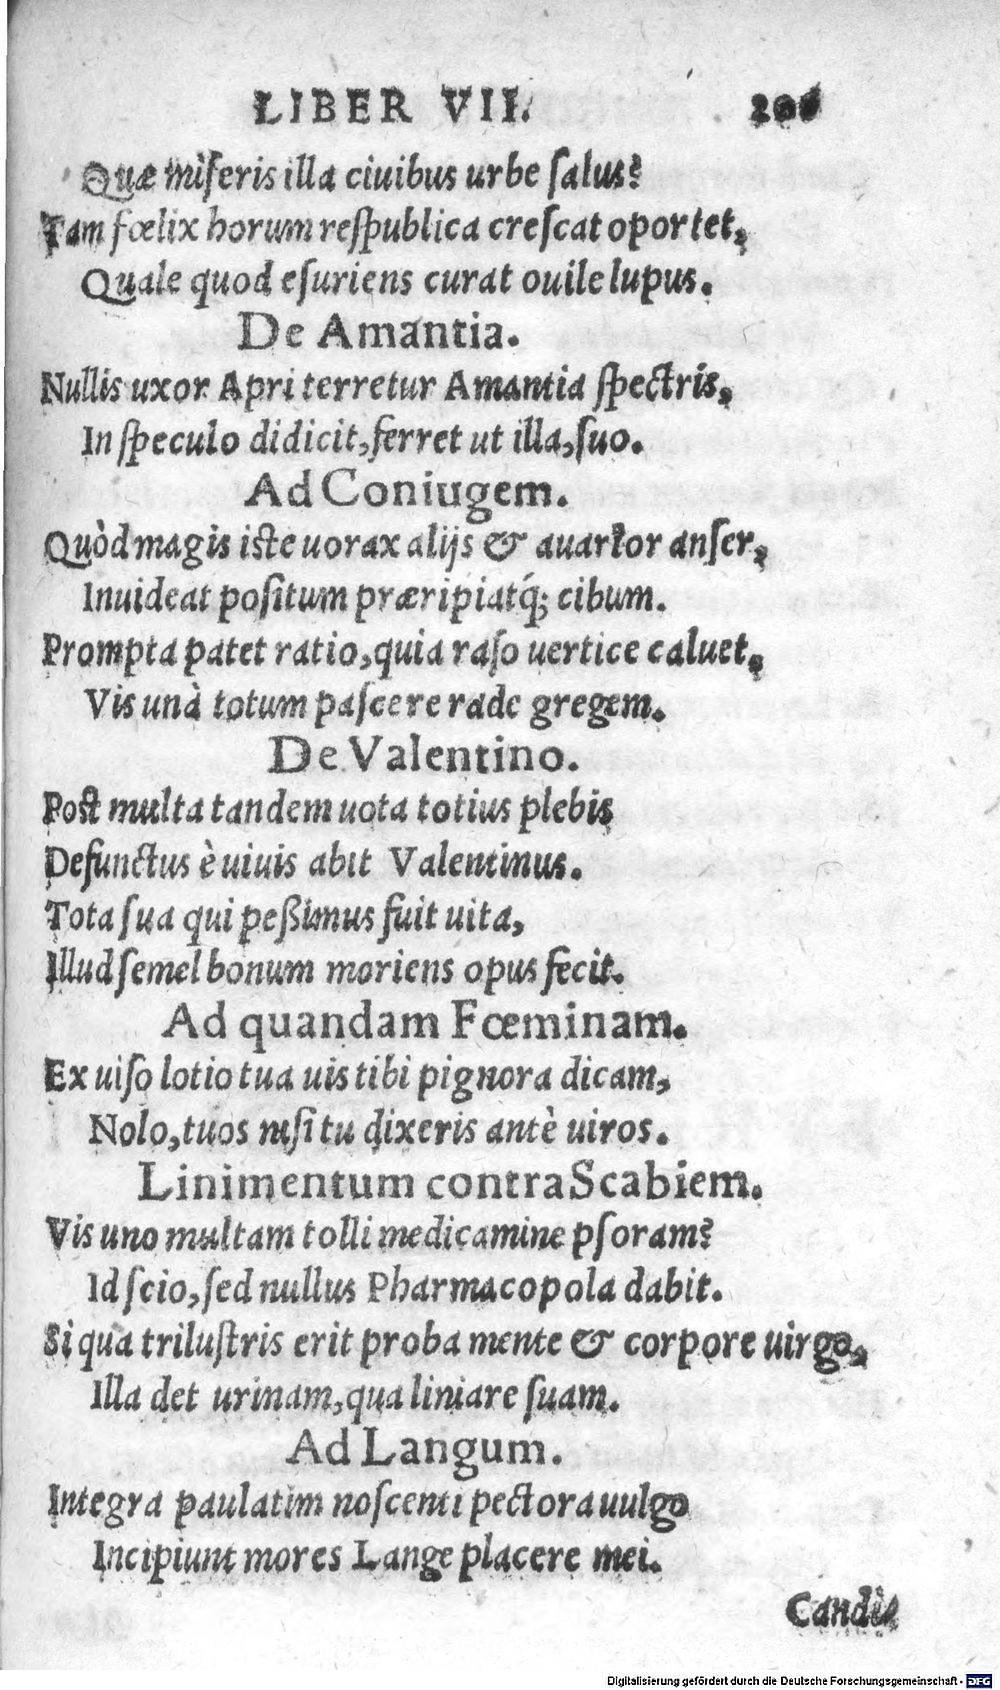 LIBER VII. 206
Quæ miseris illa ciuibus urbe salus?
Tam fœlix horum respublica crescat oportet,
Quale quod esuriens curat ouile lupus.
De Amantia.
Nullis uxor Apri terretur Amantia spectris,
In speculo didicit, ferret ut illa, suo.
Ad Coniugem.
Quòd magis iste uorax alijs & auarior anser,
Inuideat positum præripiatq́; cibum.
Prompta patet ratio, quia raso uertice caluet,
Vis unà totum pascere rade gregem.
De Valentino.
Post multa tandem uota totius plebis
Defunctus è uiuis abit Valentinus.
Tota sua qui peßimus fuit uita,
Illud semel bonum moriens opus fecit.
Ad quandam Fœminam.
Ex uiso lotio tua uis tibi pignora dicam,
Nolo, tuos nisi tu dixeris antè uiros.
Linimentum contra Scabiem.
Vis uno multam tolli medicamine psoram?
Id scio, sed nullus Pharmacopola dabit.
Si qua trilustris erit proba mente & corpore uirgo,
Illa det urinam, qua liniare suam.
Ad Langum.
Integra paulatim noscenti pectora uulgo
Incipiunt mores Lange placere mei.
Candi
Digitalisierung gefördert durch die Deutsche Forschungsgemeinschaft - DFG